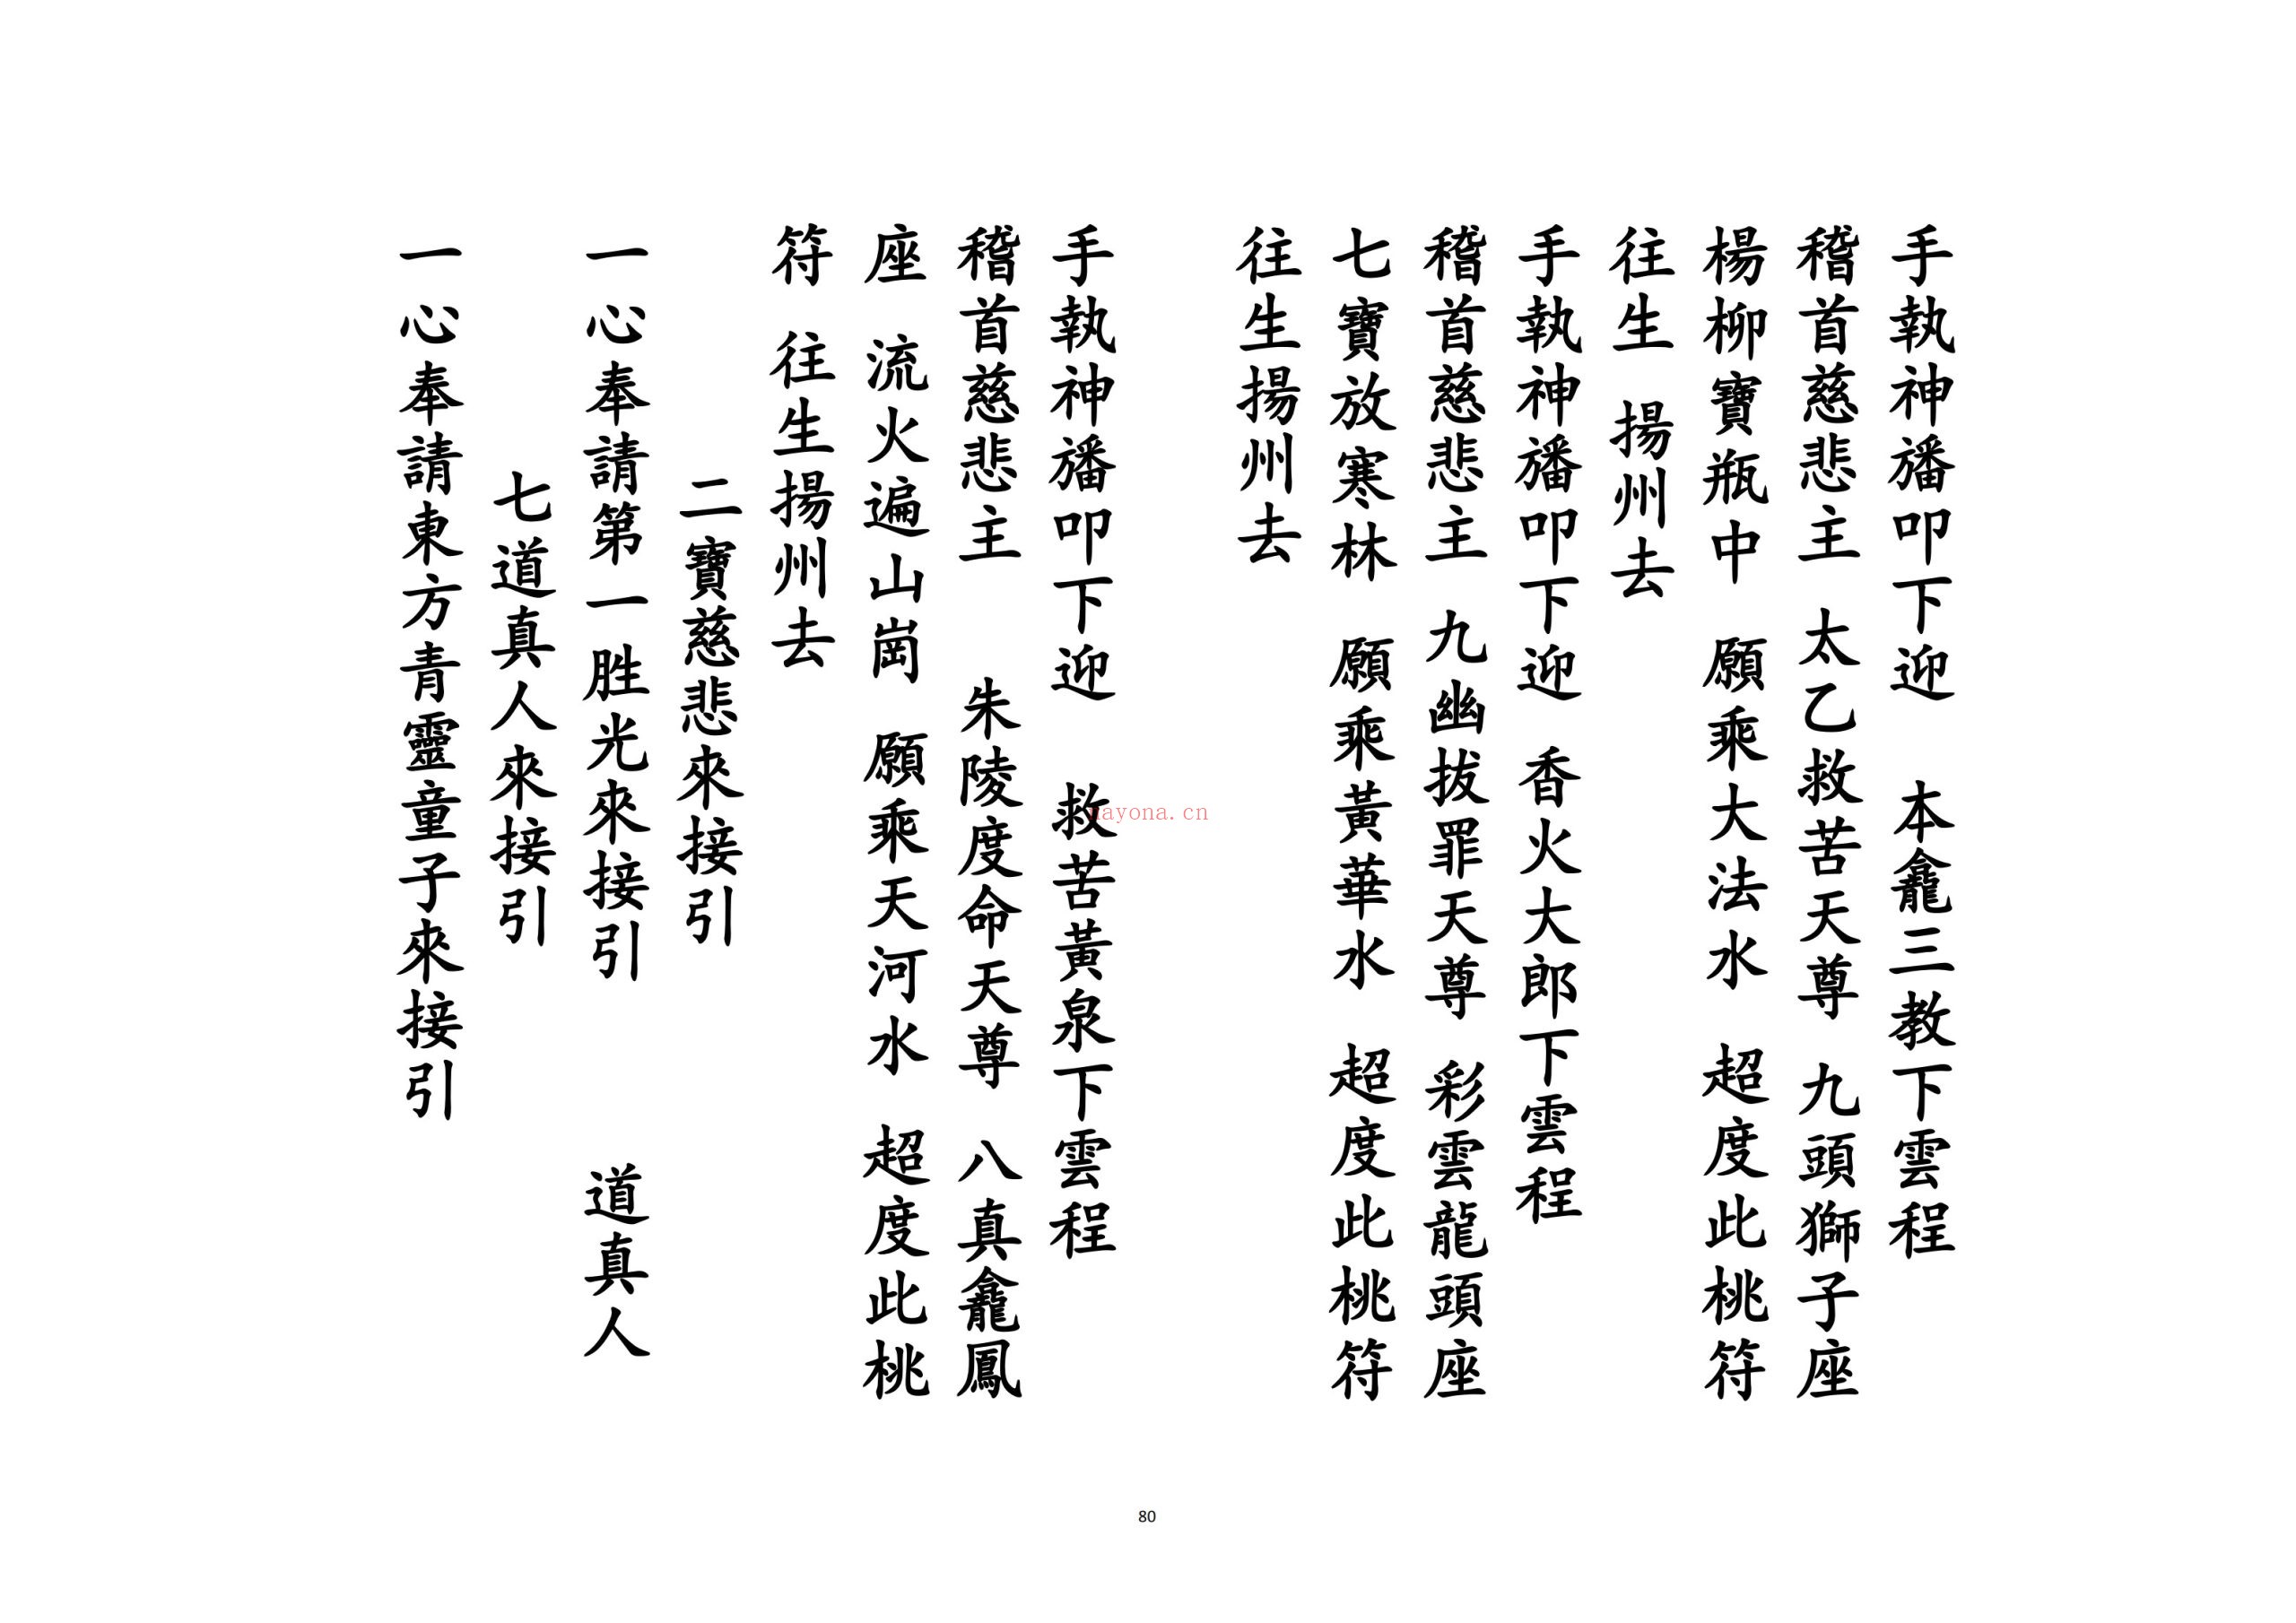 手執神旛叩下迎　本龕三教下雲程
稽首慈悲主　太乙救苦天尊　九頭獅子座
楊柳寶瓶中　願乘大法水　超度此桃符
往生　揚州去
手執神旛叩下迎　香火大郎下雲程
稽首慈悲主　九幽拔罪天尊　彩雲龍頭座
七寶放寒林　願乘黃華水　超度此桃符
往生揚州去
手執神旛叩下迎　救苦黃泉下雲程
稽首慈悲主　朱陵度命天尊　八真龕鳳
座　流火遍山崗　願乘天河水　超度此桃
符　往生揚州去
二寶慈悲來接引
一心奉請第一胜光來接引　道真人
七道真人來接引
一心奉請東方青靈童子來接引
nayona.cn
80